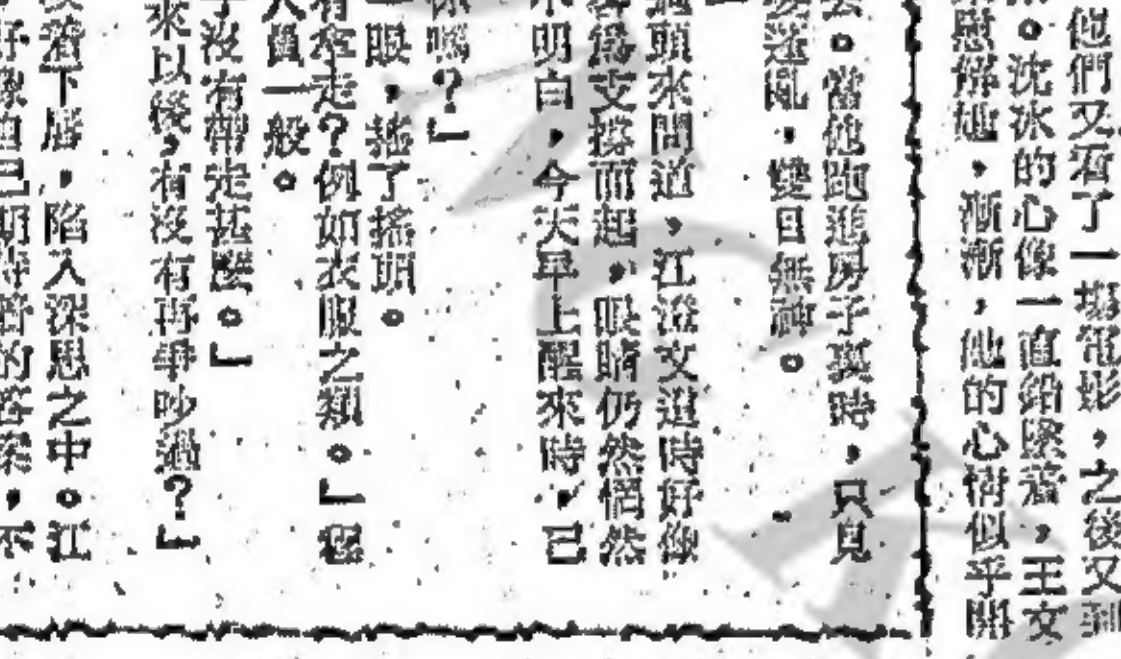 他們又看了一場電影，之後又到
。沈冰的心像一直鉛墜着，王文
慰解她，漸漸，他的心情似乎開
。當他跑進房子裏時，只見
迷亂，雙目無神。
過頭來問道，江澄文這時好像
支撐而起，眼睛仍然惘然
不明白，今天早上醒來時，己
你嗎？」
眼，搖了搖頭。
有拿走？例如衣服之類。」
人員一般。
沒有帶走甚麼。」
來以後，有沒有再爭吵過？」
着下唇，陷入深思之中。江
好像自己期待着的答案，不